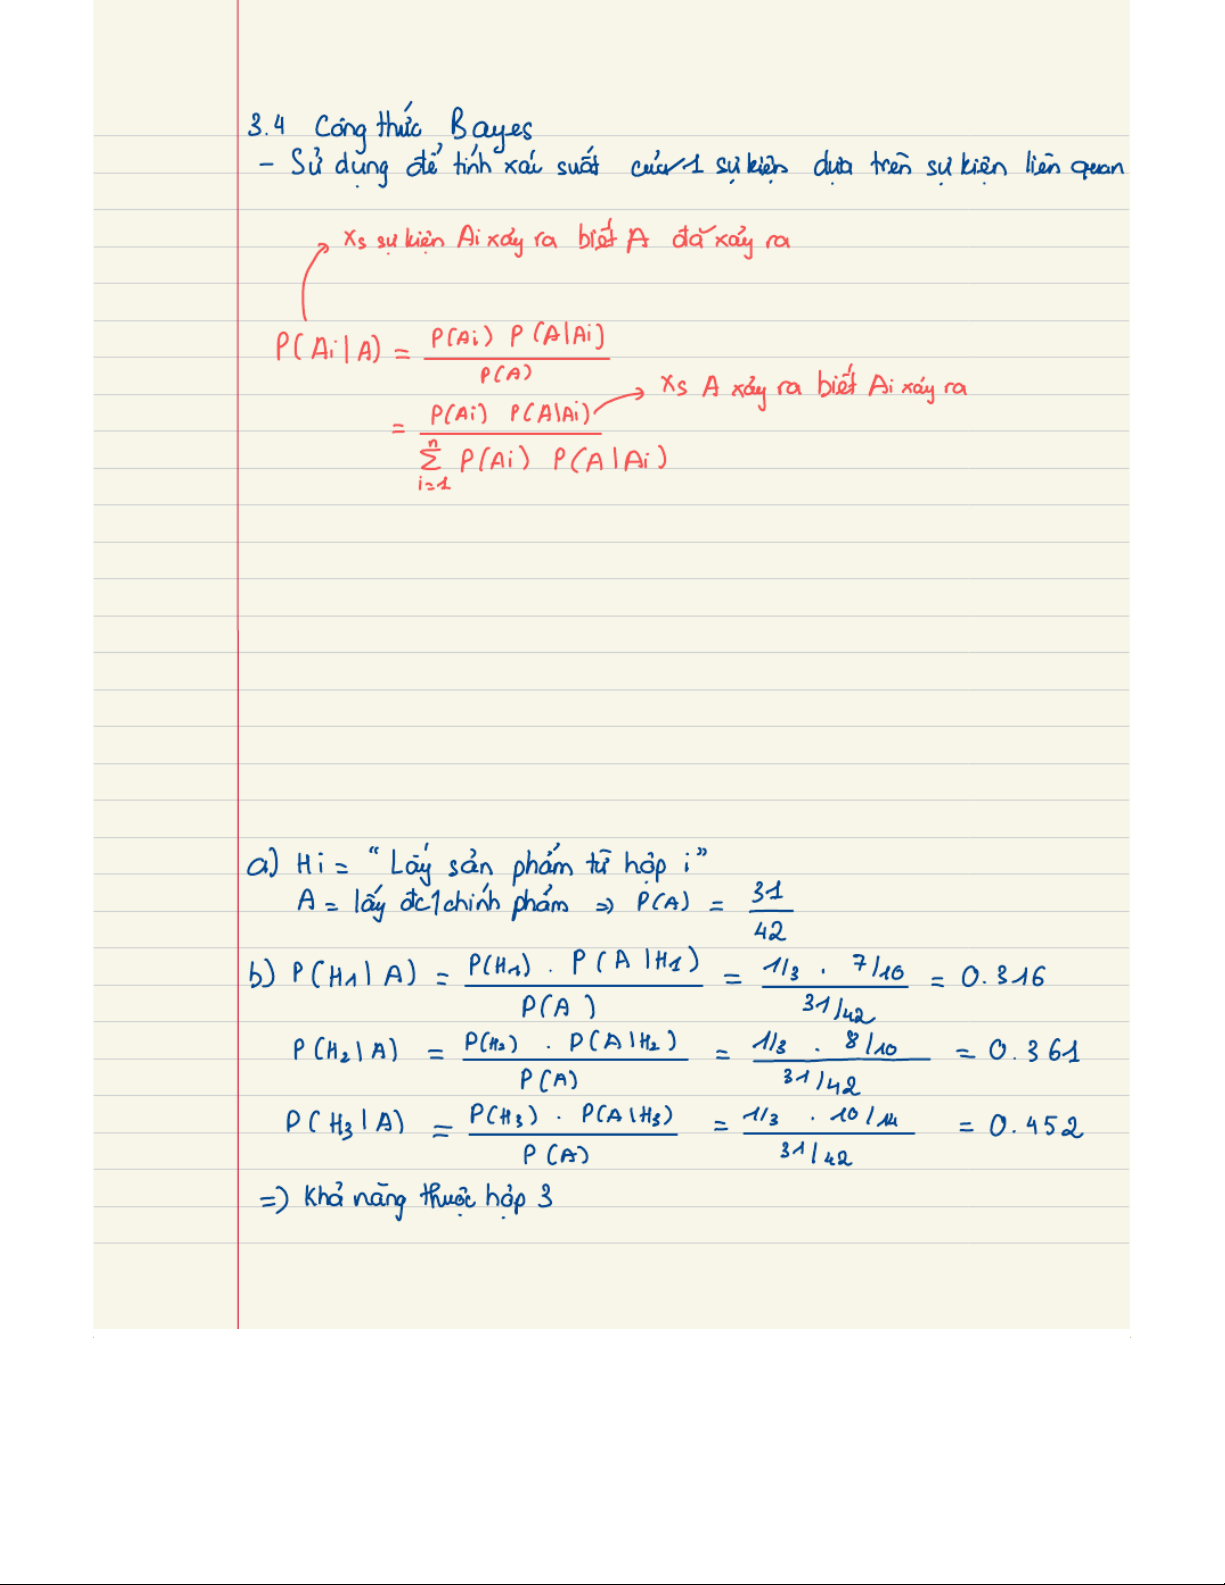 3.4 Công thức Bayes
- Sử dụng để tính xác suất của 1 sự kiện dựa trên sự kiện liên quan
xs sự kiện Ai xảy ra biết A đã xảy ra
P(Ai|A) = P(Ai) P(A|Ai) / P(A)
xs A xảy ra biết Ai xảy ra
= P(Ai) P(A|Ai) / n Σ i=1 P(Ai) P(A|Ai)
a) Hi = "Lấy sản phẩm từ hộp i"
A = lấy đc 1 chính phẩm => P(A) = 31/42
b) P(H1|A) = P(H1) . P(A|H1) / P(A) = 1/3 . 7/10 / 31/42 = 0.316
P(H2|A) = P(H2) . P(A|H2) / P(A) = 1/3 . 8/10 / 31/42 = 0.361
P(H3|A) = P(H3) . P(A|H3) / P(A) = 1/3 . 10/14 / 31/42 = 0.452
=) Khả năng thuộc hộp 3